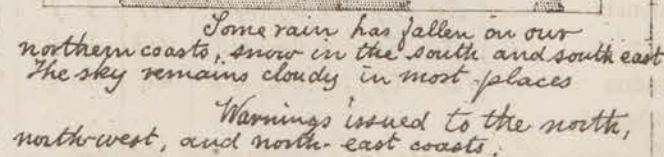 Some rain has fallen on our
northern coasts, snow in the south and south east
The sky remains cloudy in most places
Warnings issued to the north,
north-west, and north-east coasts.